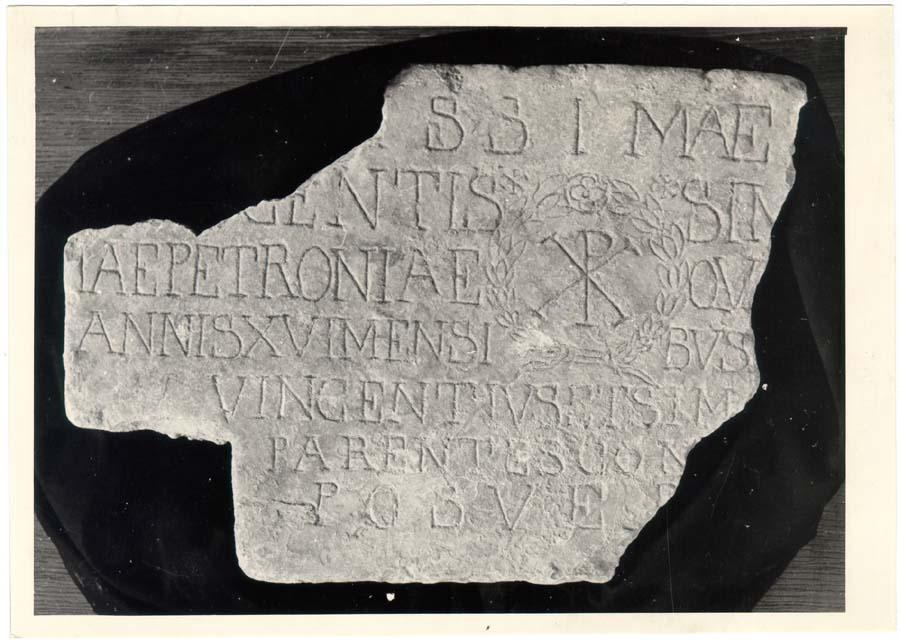 SSIMAE
GENTIS SIN
IAEPETRONIAE QV
ANNISXVIMENSI BVS
VINCENTIVSETSIM
PARENTESCON
POSVE